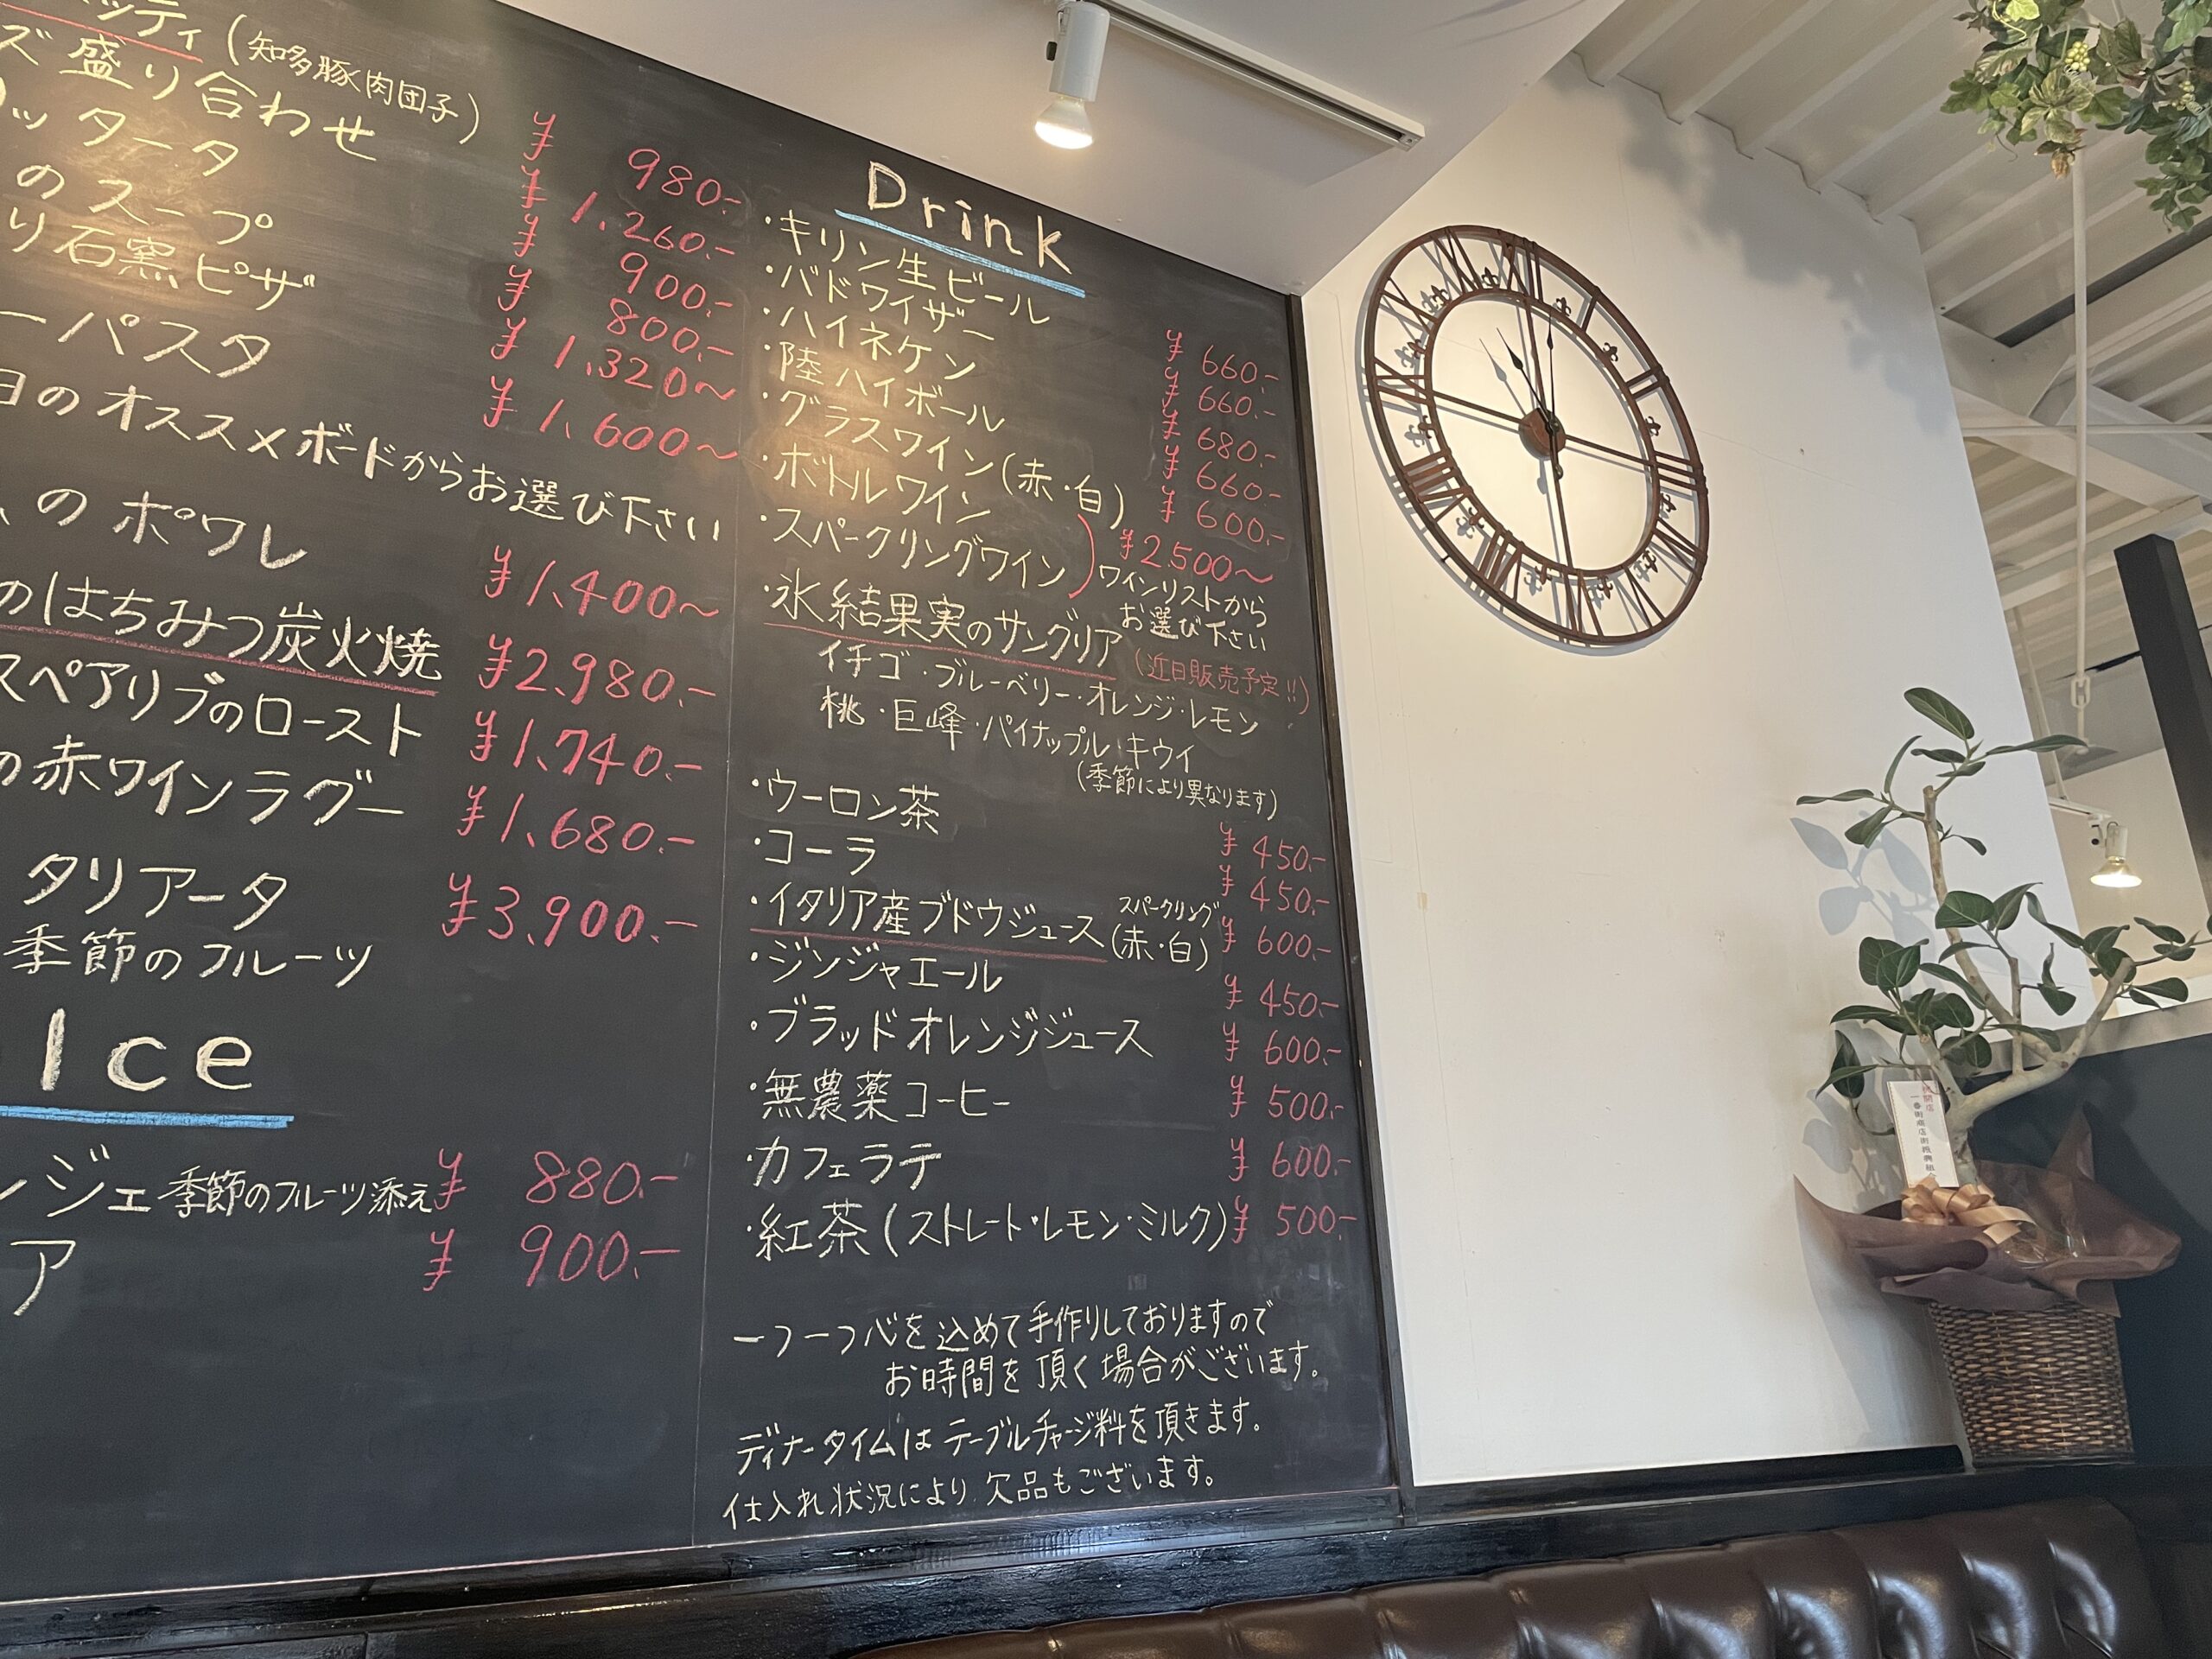 ッティ(知多豚肉団子)
ズ盛り合わせ ¥ 980.-
ッタータ ¥ 1,260.-
のスープ ¥ 900.-
り石窯ピザ ¥ 800.-
ーパスタ ¥ 1,320〜
日のオススメボードからお選び下さい ¥ 1,600〜
のポワレ ¥1,400〜
のはちみつ炭火焼 ¥2,980.-
スペアリブのロースト ¥1,740.-
の赤ワインラグー ¥1,680.-
タリアータ ¥3,900.-
季節のフルーツ
Ice
ンジェ季節のフルーツ添え ¥ 880.-
ア ¥ 900.-
Drink
・キリン生ビール ¥ 660.-
・バドワイザー ¥ 660.-
・ハイネケン ¥ 680.-
・陸ハイボール ¥ 660.-
・グラスワイン(赤・白) ¥ 600.-
・ボトルワイン ¥2,500〜
・スパークリングワイン ワインリストから
お選び下さい
・氷結果実のサングリア (近日販売予定!!)
イチゴ・ブルーベリー・オレンジ・レモン
桃・巨峰・パイナップル・キウイ
(季節により異なります)
・ウーロン茶 ¥ 450.-
・コーラ ¥ 450.-
・イタリア産ブドウジュース スパークリング(赤・白) ¥ 600.-
・ジンジャエール ¥ 450.-
・ブラッドオレンジジュース ¥ 600.-
・無農薬コーヒー ¥ 500.-
・カフェラテ ¥ 600.-
・紅茶(ストレート・レモン・ミルク) ¥ 500.-
一つ一つ心を込めて手作りしておりますので
お時間を頂く場合がございます。
ディナータイムはテーブルチャージ料を頂きます。
仕入れ状況により欠品もございます。
XII
I
II
III
IIII
V
VI
VII
VIII
IX
X
XI
開店
一番街商店街振興組合